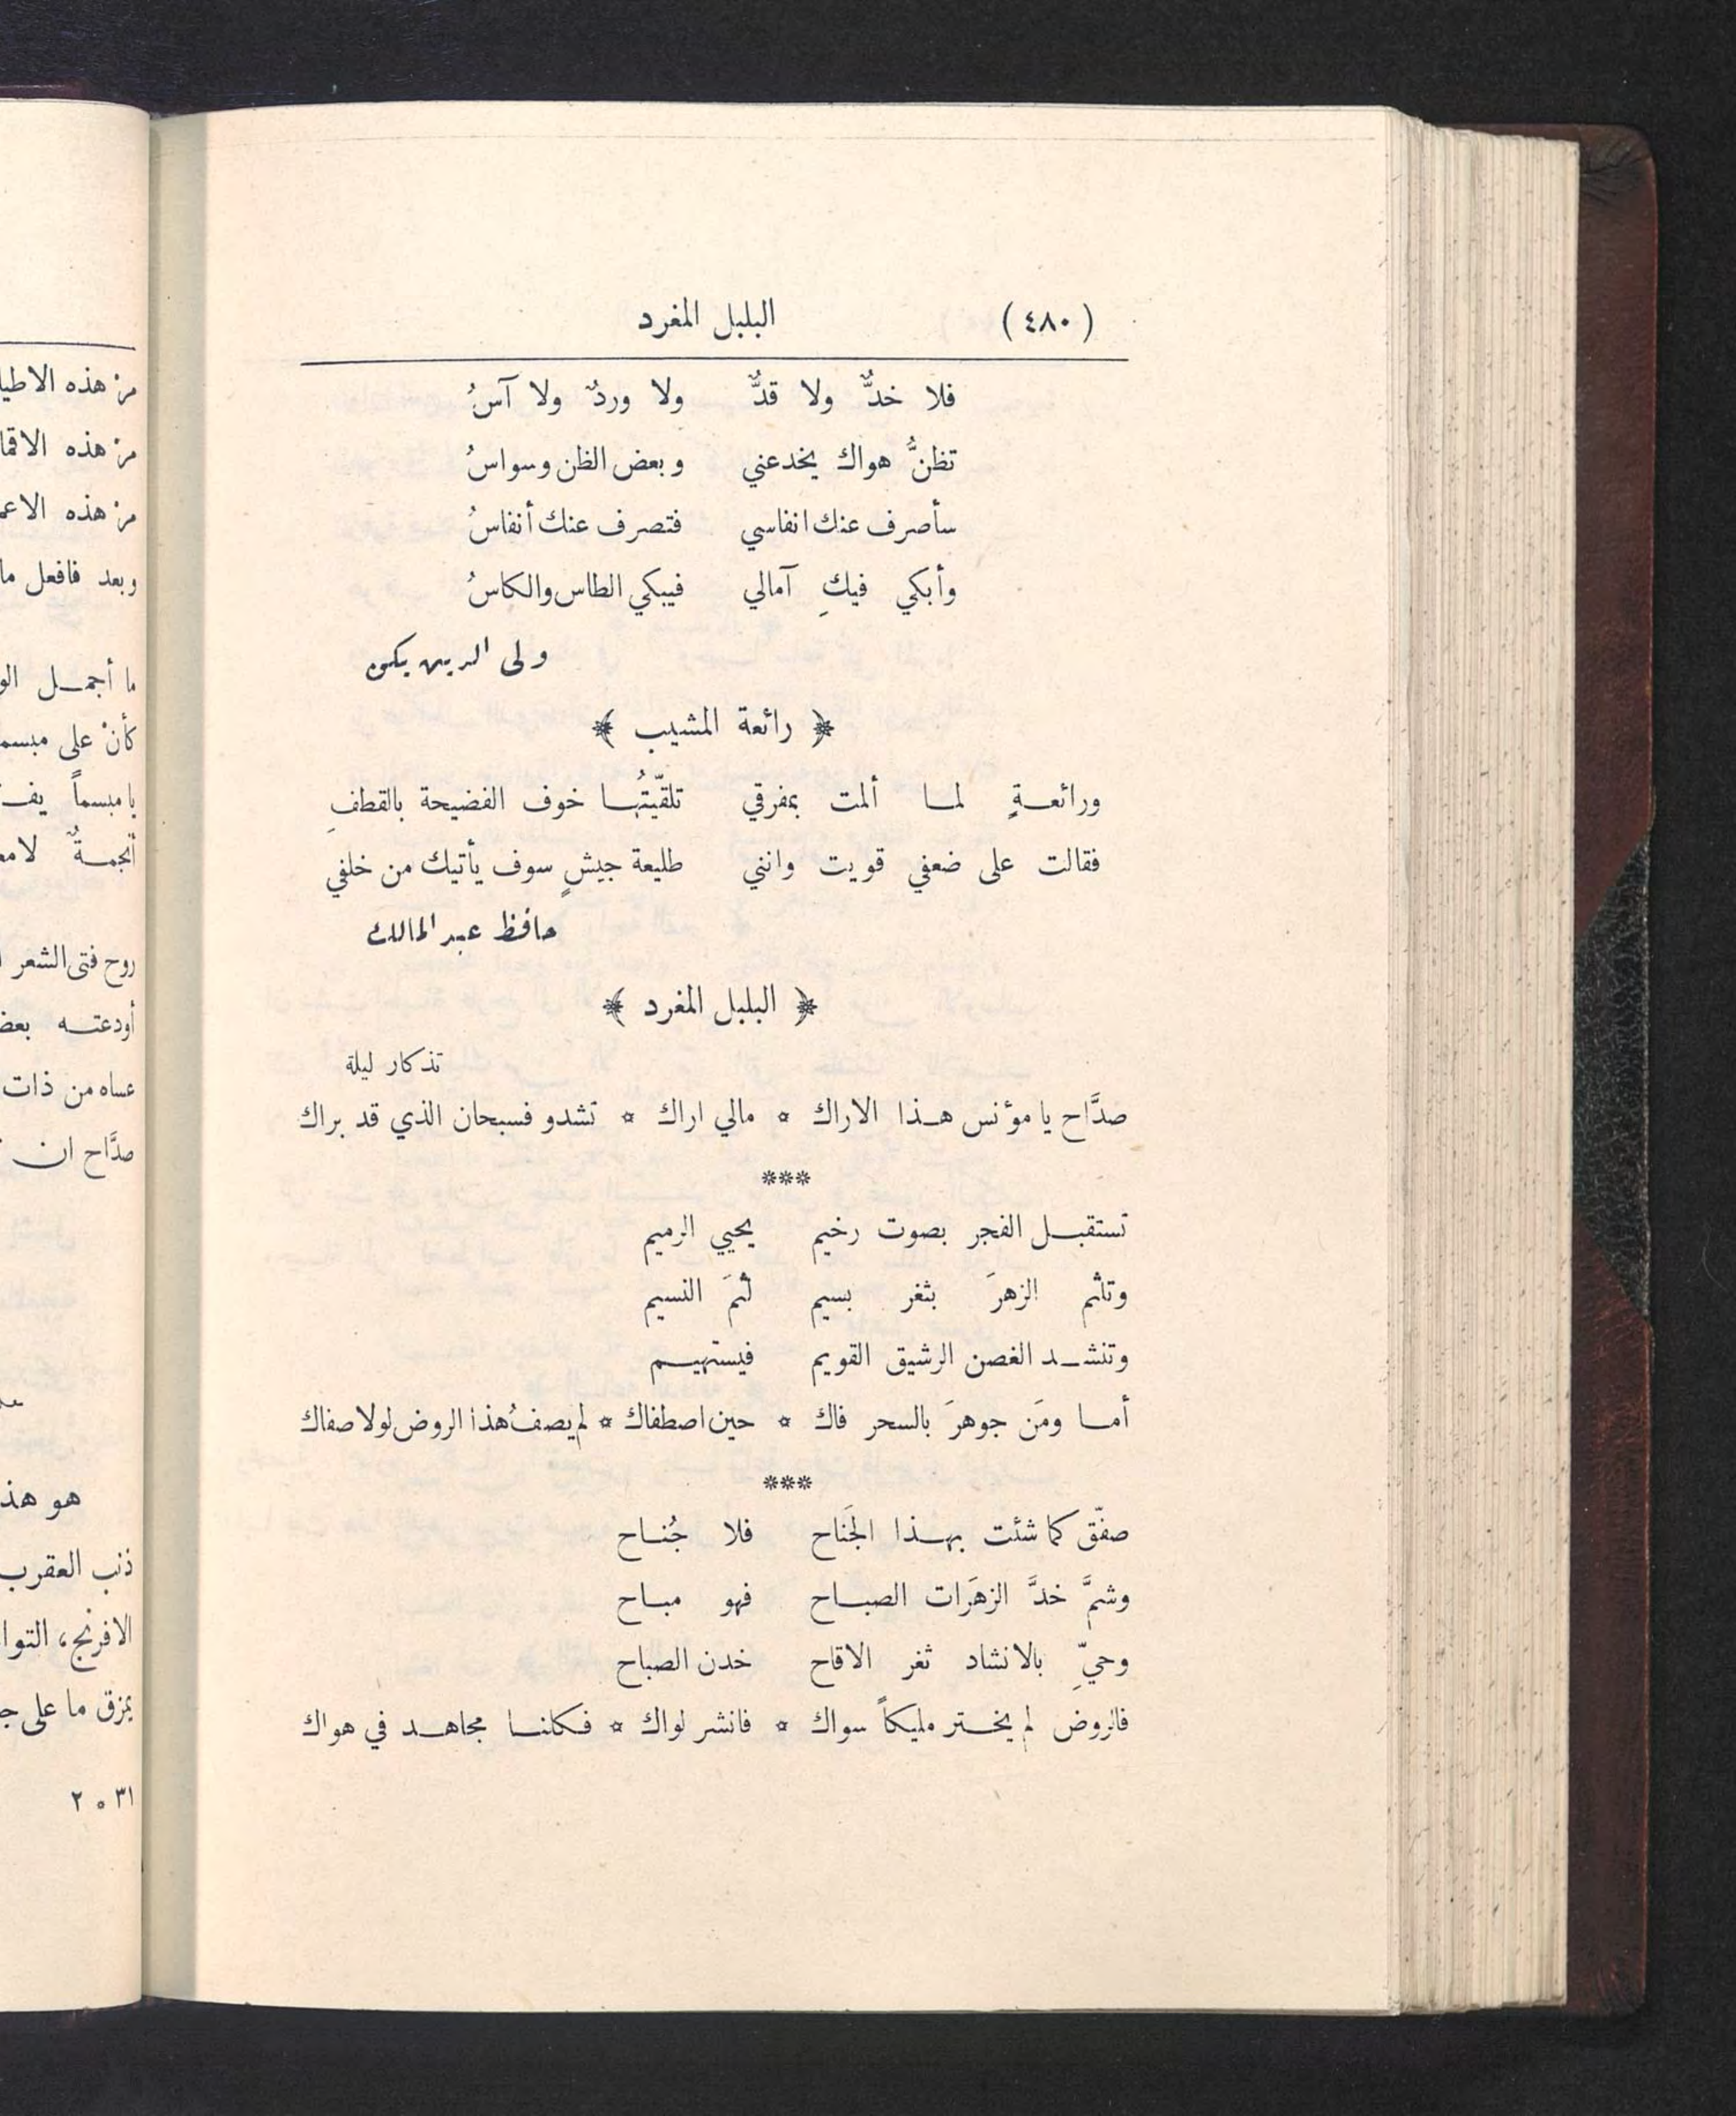 (٤٨٠) البلبل المغرد
فلا خدٌّ ولا قدٌّ ولا وردٌ ولا آسُ
تظنُّ هواك يخدعني وبعض الظن وسواسُ
سأصرف عنك انفاسي فتصرف عنك أنفاسُ
وأبكي فيكِ آمالي فيبكي الطاس والكاسُ
ولى الدين يكن
﴿ رائعة المشيب ﴾
ورائعـةٍ لمـا ألمت بمفرقي تلقّيتُهـا خوف الفضيحة بالقطفِ
فقالت على ضعفي قويت وانني طليعة جيشٍ سوف يأتيك من خلفي
حافظ عبد المالك
﴿ البلبل المغرد ﴾
تذكار ليلة
صدَّاح يا مؤنس هـذا الاراك * مالي اراك * تشدو فسبحان الذي قد براك
***
تستقبـل الفجر بصوت رخيم يحيي الرميم
وتلثم الزهرَ بثغر بسيم لثمَ النسيم
وتنشـد الغصن الرشيق القويم فيستهيـم
أمـا ومَن جوهرَ بالسحر فاك * حين اصطفاك * لم يصفُ هذا الروض لولا صفاك
***
صفّق كما شئت بهـذا الجَناح فلا جُنـاح
وشمَّ خدَّ الزهَرات الصبـاح فهو مبـاح
وحيِّ بالانشاد ثغر الاقاح خدن الصباح
فالروض لم يختر مليكاً سواك * فانشر لواك * فكلنـا مجاهـد في هواك
من هذه
من هذه
من هذه
وبعد فافعل ما
ما أجمـل
كأنْ على
يا مبسماً
أنجمـةٌ
روح فتى الشعر
أودعتـه
عساه من ذات
صدَّاح ان
هو
ذنب العقرب
الافرنج،
يمزق ما على